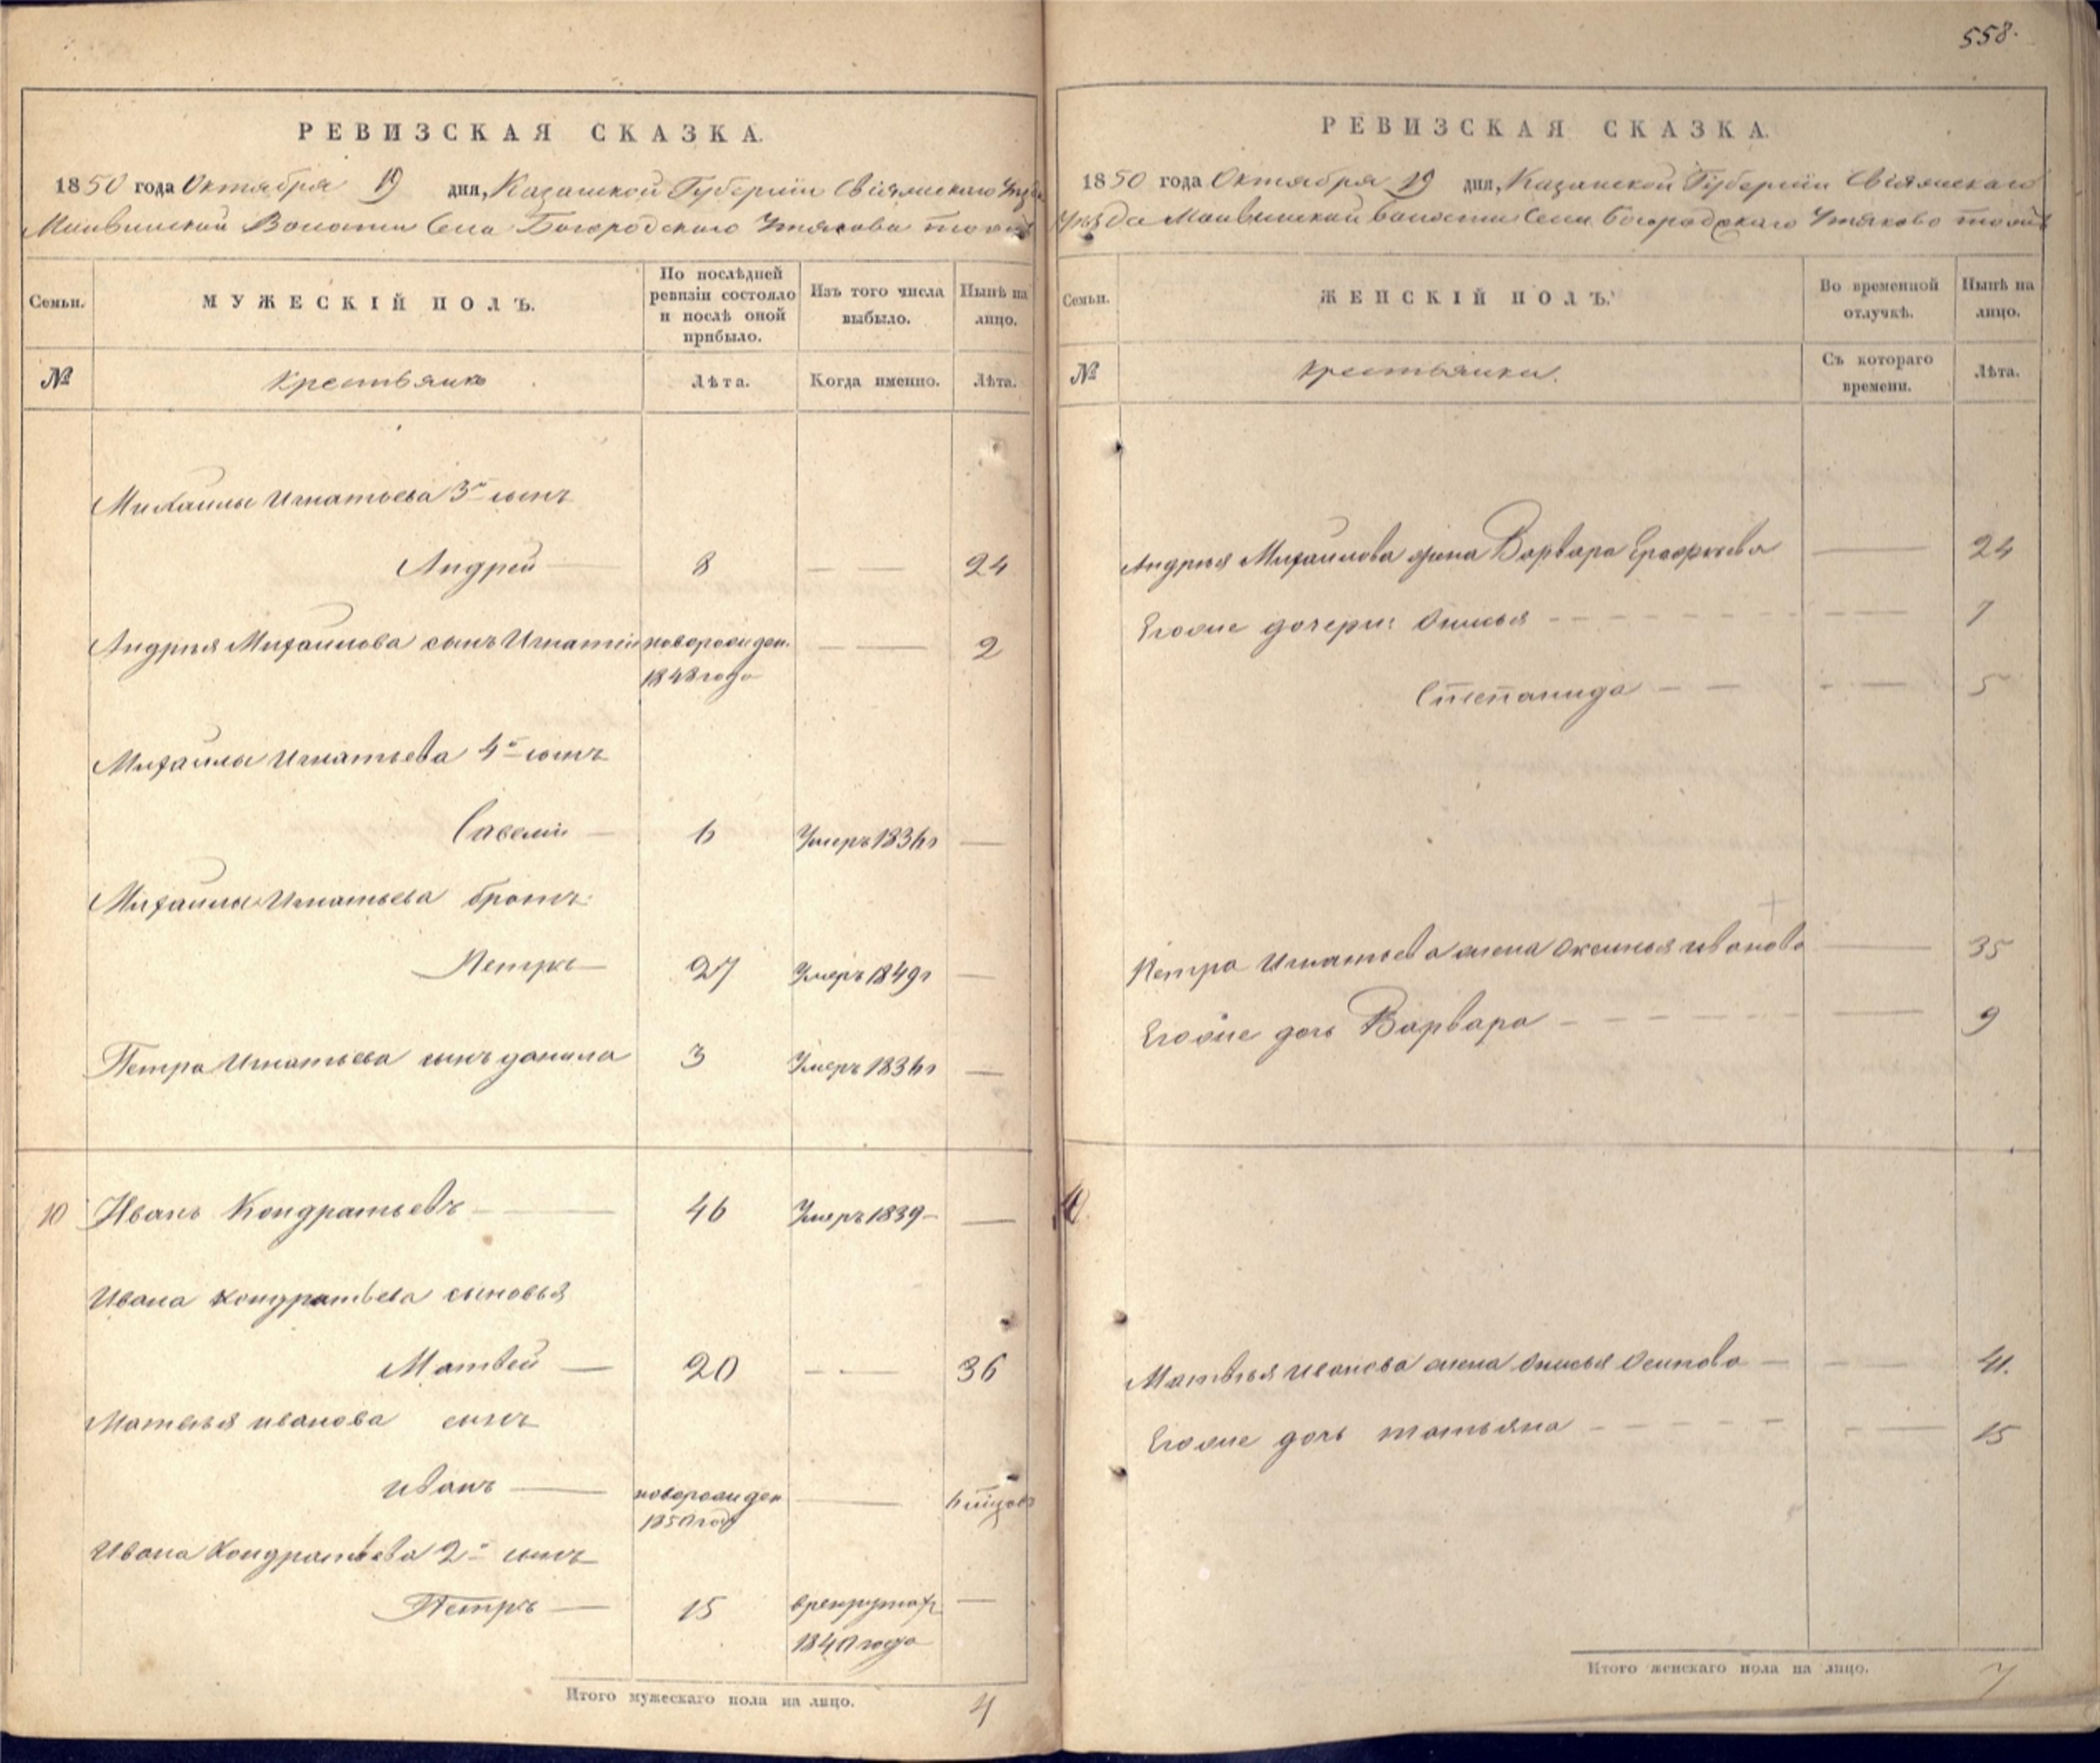 558.
РЕВИЗСКАЯ СКАЗКА.
1850 года Октября 19 дня, Казанской Губернiи Свiяжскаго Уѣзда
Волости Села Богородскаго Утякова тожъ
Семьи.
МУЖЕСКІЙ ПОЛЪ.
По послѣдней ревизіи состояло и послѣ оной прибыло.
Изъ того числа выбыло.
Нынѣ на лицо.
№
Крестьянъ
Лѣта.
Когда именно.
Лѣта.
Михаилы Игнатьева 3й сынъ
Андрей 8 — — 24
Андрея Михаилова сынъ Игнатiй новорожден. — — 2
1848 года
Михаилы Игнатьева 4й сынъ
Савелiй — 6 Умеръ 1836 г —
Михаилы Игнатьева братъ
Петръ — 27 Умеръ 1849 г —
Петра Игнатьева сынъ данила 3 Умеръ 1836 г —
10 Иванъ Кондратьевъ — 46 Умеръ 1839 — —
Ивана кондратьева сыновья
Матвей — 20 — — 36
Матвѣя иванова сынъ
иванъ — новорожден — 6 мѣцовъ
1850 году
Ивана Кондратьева 2й сынъ
Петръ — 15 врекрутахъ —
1840 года
Итого мужескаго пола на лицо. 4
РЕВИЗСКАЯ СКАЗКА.
1850 года Октября 19 дня, Казанской Губернiи Свiяжскаго
Уѣзда волости Села Богородскаго Утяково тожъ
Семьи.
ЖЕНСКІЙ ПОЛЪ.
Во временной отлучкѣ.
Нынѣ на лицо.
№
Крестьянки.
Съ котораго времени.
Лѣта.
Андрея Михаилова жена Варвара Ерофѣева — 24
Егожие дочери: Анисья — — 7
Степанида — — — 5
Петра Игнатьева жена Оксинья иванова — 35
Егожие дочь Варвара — — 9
10
Матвѣя иванова жена Анисья Осипова — — 41.
Егожие дочь татьяна — — 15
Итого женскаго пола на лицо. 7